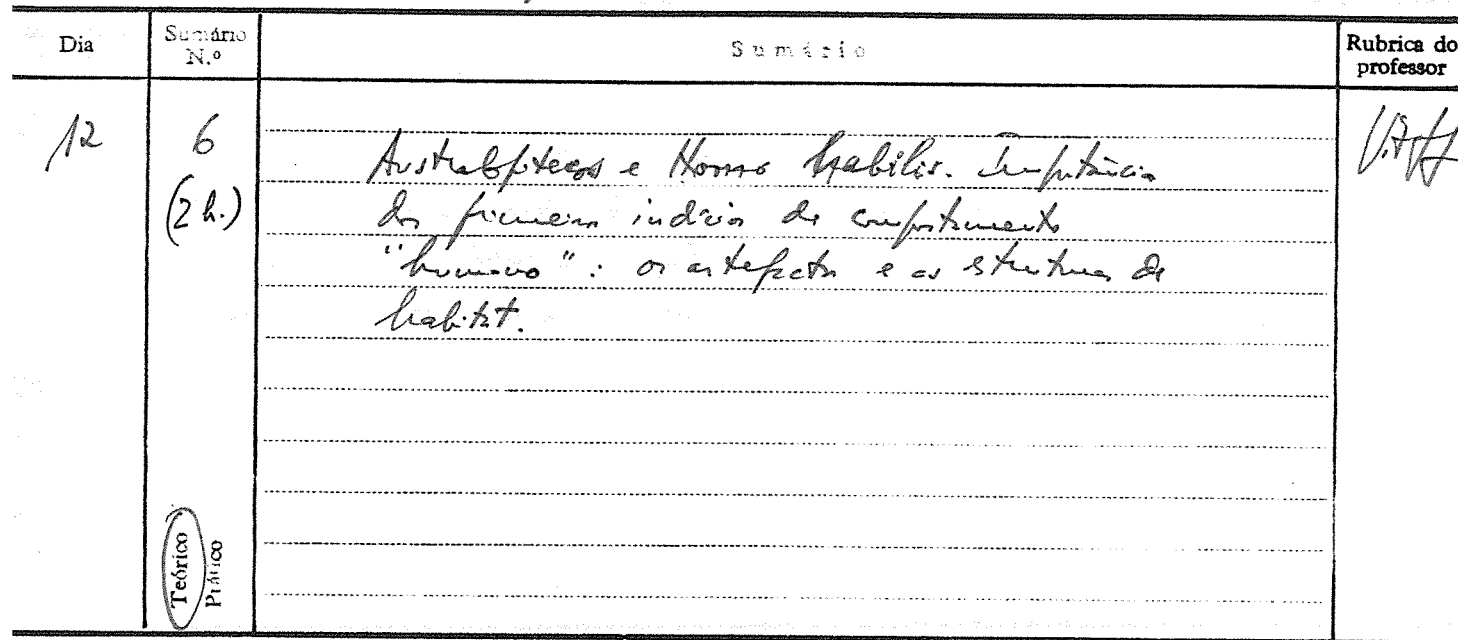 Dia
Sumário
N.º
Sumário
Rubrica do
professor
12
6
(2 h.)
Australopitecos e Homo habilis. Importância
dos primeiros indícios de comportamento
"humano": os artefactos e as estruturas de
habitat.
Teórico
Prático